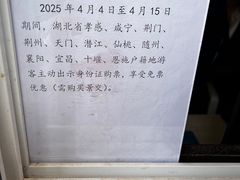 2025 年 4 月 4 日至 4 月 15 日
期间，湖北省孝感、咸宁、荆门、
荆州、天门、潜江、仙桃、随州、
襄阳、宜昌、十堰、恩施户籍地游
客主动出示身份证购票，享受免票
优惠（需购买景交）。